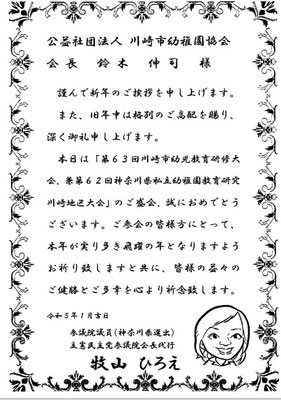 公益社団法人 川崎市幼稚園協会
会長 鈴木 伸司 様
謹んで新年のご挨拶を申し上げます。
また、旧年中は格別のご高配を賜り、
深く御礼申し上げます。
本日は「第63回川崎市幼児教育研修大
会、兼第62回神奈川県私立幼稚園教育研究
川崎地区大会」のご盛会、誠におめでとう
ございます。ご参会の皆様方にとって、
本年が実り多き飛躍の年となりますよう
お祈り致しますと共に、皆様の益々の
ご健勝とご多幸を心より祈念致します。
令和5年1月吉日
参議院議員(神奈川県選出)
立憲民主党参議院会長代行
牧山 ひろえ